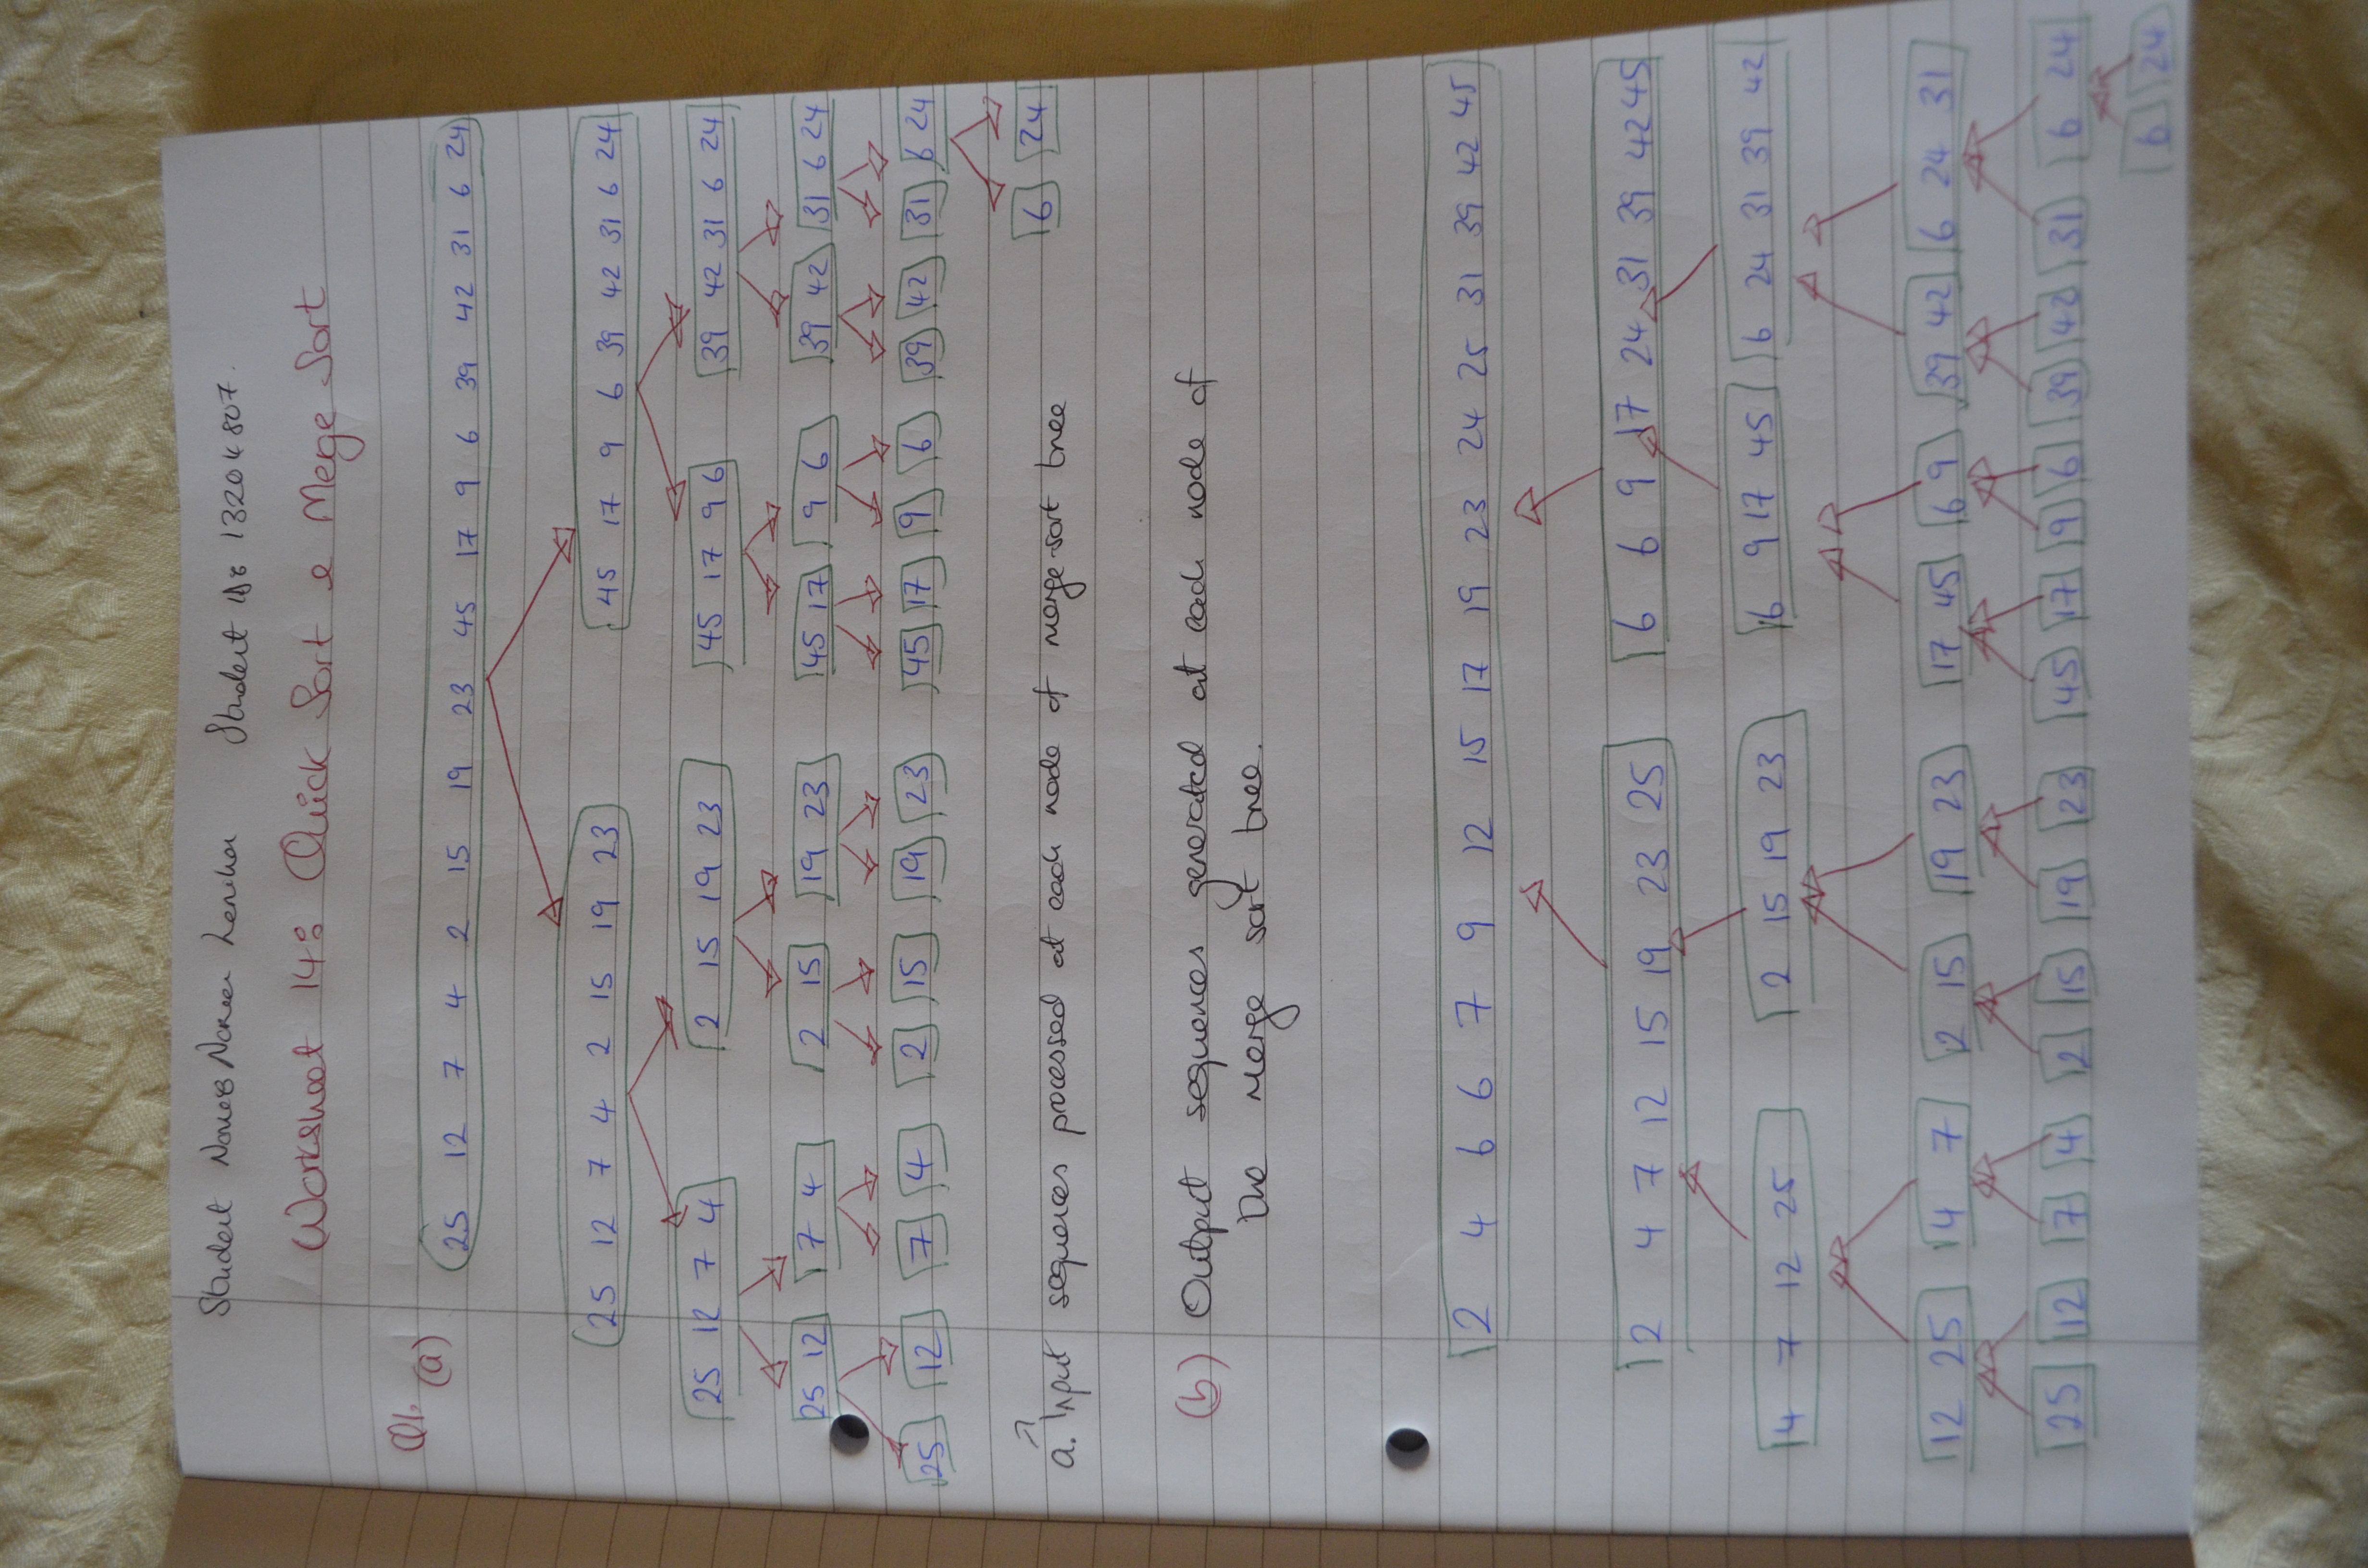 Student Name: Student ID: 13204807.
Worksheet 14: Quick Sort & Merge Sort
Q1. (a)
25 12 7 4 2 15 19 23 45 17 9 6 39 42 31 6 24
25 12 7 4 2 15 19 23 45 17 9 6 39 42 31 6 24
25 12 7 4 2 15 19 23 45 17 9 6 39 42 31 6 24
25 12 7 4 2 15 19 23 45 17 9 6 39 42 31 6 24
25 12 7 4 2 15 19 23 45 17 9 6 39 42 31 6 24
6 24
a. Input sequences processed at each node of merge-sort tree
(b) Output sequences generated at each node of
the merge sort tree.
2 4 6 6 7 9 12 15 17 19 23 24 25 31 39 42 45
2 4 7 12 15 19 23 25 6 6 9 17 24 31 39 42 45
4 7 12 25 2 15 19 23 6 9 17 45 6 24 31 39 42
12 25 4 7 2 15 19 23 17 45 6 9 39 42 6 24 31
25 12 7 4 2 15 19 23 45 17 9 6 39 42 31 6 24
6 24